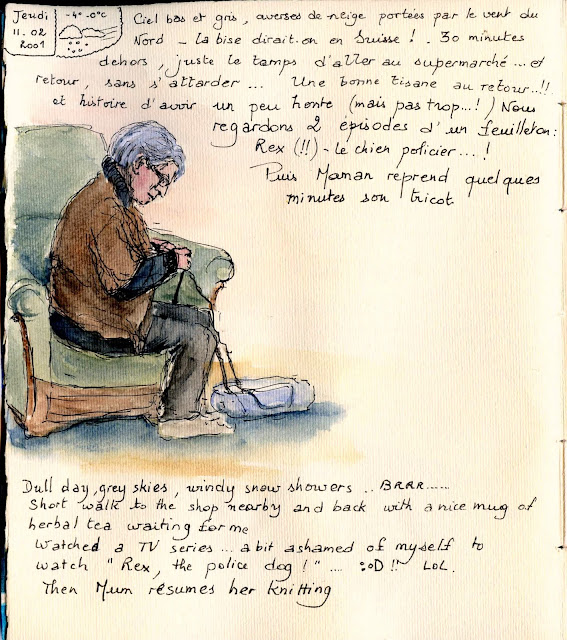 Jeudi
11.02
2001
-4° -0°C
Ciel bas et gris, averses de neige portées par le vent du
Nord - la bise dirait-on en Suisse !. 30 minutes
dehors, juste le temps d'aller au supermarché ... et
retour, sans s'attarder ... Une bonne tisane au retour..!!
et histoire d'avoir un peu honte (mais pas trop...!) Nous
regardons 2 épisodes d'un feuilleton:
Rex (!!) - le chien policier....!
Puis Maman reprend quelques
minutes son tricot
Dull day, grey skies, windy snow showers .. BRRR......
Short walk to the shop nearby and back with a nice mug of
herbal tea waiting for me
Watched a TV series ... a bit ashamed of myself to
watch "Rex, the police dog!" .... :oD !! LOL.
Then Mum résumes her knitting